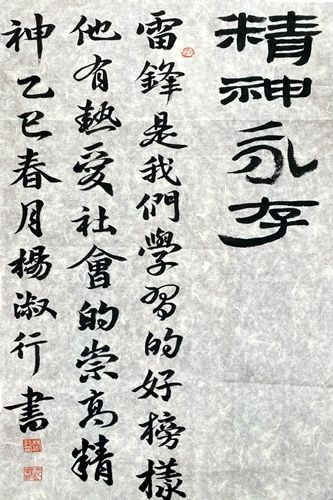 精神永存
雷鋒是我們學習的好榜樣
他有熱愛社會的崇高精
神乙巳春月楊淑行書